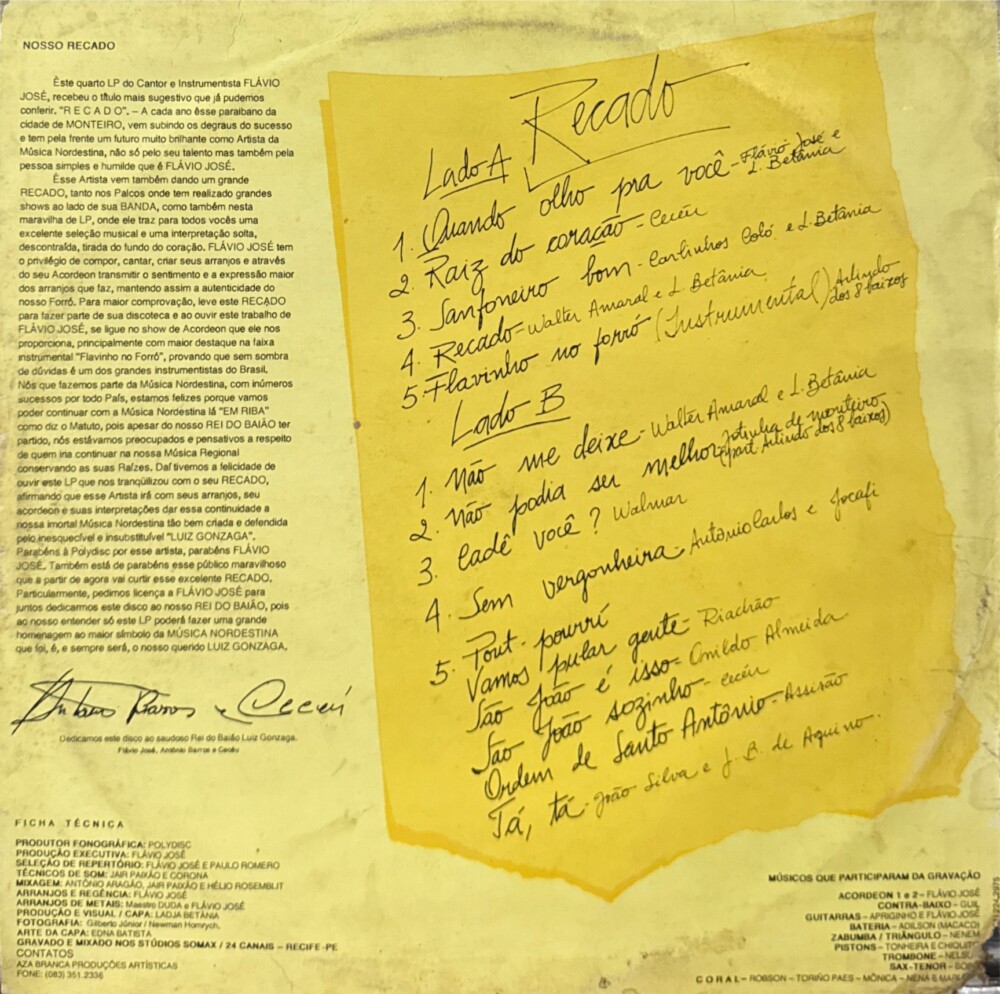 NOSSO RECADO
Êste quarto LP do Cantor e Instrumentista FLÁVIO
JOSÉ, recebeu o título mais sugestivo que já pudemos
conferir. "R E C A D O". – A cada ano êsse paraibano da
cidade de MONTEIRO, vem subindo os degraus do sucesso
e tem pela frente um futuro muito brilhante como Artista da
Música Nordestina, não só pelo seu talento mas também pela
pessoa simples e humilde que é FLÁVIO JOSÉ.
Êsse Artista vem também dando um grande
RECADO, tanto nos Palcos onde tem realizado grandes
shows ao lado de sua BANDA, como também nesta
maravilha de LP, onde ele traz para todos vocês uma
excelente seleção musical e uma interpretação solta,
descontraída, tirada do fundo do coração. FLÁVIO JOSÉ tem
o privilégio de compor, cantar, criar seus arranjos e através
do seu Acordeon transmitir o sentimento e a expressão maior
dos arranjos que faz, mantendo assim a autenticidade do
nosso Forró. Para maior comprovação, leve este RECADO
para fazer parte de sua discoteca e ao ouvir este trabalho de
FLÁVIO JOSÉ, se ligue no show de Acordeon que ele nos
proporciona, principalmente com maior destaque na faixa
instrumental "Flavinho no Forró", provando que sem sombra
de dúvidas é um dos grandes instrumentistas do Brasil.
Nós que fazemos parte da Música Nordestina, com inúmeros
sucessos por todo País, estamos felizes porque vamos
poder continuar com a Música Nordestina lá "EM RIBA"
como diz o Matuto, pois apesar do nosso REI DO BAIÃO ter
partido, nós estávamos preocupados e pensativos a respeito
de quem iria continuar na nossa Música Regional
conservando as suas Raízes. Daí tivemos a felicidade de
ouvir este LP que nos tranqüilizou com o seu RECADO,
afirmando que esse Artista irá com seus arranjos, seu
acordeon e suas interpretações dar essa continuidade a
nossa imortal Música Nordestina tão bem criada e defendida
pelo inesquecível e insubstituível "LUIZ GONZAGA".
Parabéns à Polydisc por esse artista, parabéns FLÁVIO
JOSÉ. Também está de parabéns esse público maravilhoso
que a partir de agora vai curtir esse excelente RECADO.
Particularmente, pedimos licença a FLÁVIO JOSÉ para
juntos dedicarmos este disco ao nosso REI DO BAIÃO, pois
ao nosso entender só este LP poderá fazer uma grande
homenagem ao maior símbolo da MÚSICA NORDESTINA
que foi, é, e sempre será, o nosso querido LUIZ GONZAGA.
Antonio Barros e Ceceu
Dedicamos este disco ao saudoso Rei do Baião Luiz Gonzaga.
Flávio José, Antônio Barros e Ceceu
FICHA TÉCNICA
PRODUTOR FONOGRÁFICA: POLYDISC
PRODUÇÃO EXECUTIVA: FLÁVIO JOSÉ
SELEÇÃO DE REPERTÓRIO: FLÁVIO JOSÉ E PAULO ROMERO
TÉCNICOS DE SOM: JAIR PAIXÃO E CORONA
MIXAGEM: ANTÔNIO ARAGÃO, JAIR PAIXÃO E HÉLIO ROSEMBLIT
ARRANJOS E REGÊNCIA: FLÁVIO JOSÉ
ARRANJOS DE METAIS: Maestro DUDA e FLÁVIO JOSÉ
PRODUÇÃO E VISUAL / CAPA: LADJA BETÂNIA
FOTOGRAFIA: Gilberto Júnior / Newman Homrych.
ARTE DA CAPA: EDNA BATISTA
GRAVADO E MIXADO NOS STÚDIOS SOMAX / 24 CANAIS – RECIFE - PE
CONTATOS
AZA BRANCA PRODUÇÕES ARTÍSTICAS
FONE: (083) 351.2336
Recado
Lado A
1. Quando olho pra você - Flávio José e
L. Betânia
2. Raiz do coração - Ceceu
3. Sanfoneiro bom - Carlinhos Coló e L. Betânia
4. Recado - Walter Amaral e L Betânia
5. Flavinho no forró (Instrumental) Arlindo
dos 8 baixos
Lado B
1. Não me deixe - Walter Amaral e L. Betânia
2. Não podia ser melhor - Jotinha de monteiro
(part. Arlindo dos 8 baixos)
3. Cadê você? Walmar
4. Sem vergonheira - Antônio Carlos e Jocafi
5. Pout-pourri
Vamos pular gente - Riachão
São João é isso - Onildo Almeida
São João sozinho - Ceceu
Ordem de Santo Antônio - Assisão
Tá, tá - João Silva e J. B. de Aquino.
MÚSICOS QUE PARTICIPARAM DA GRAVAÇÃO
ACORDEON 1 e 2 – FLÁVIO JOSÉ
CONTRA-BAIXO – GUIL
GUITARRAS – APRIGINHO E FLÁVIO JOSÉ
BATERIA – ADILSON (MACACO)
ZABUMBA / TRIÂNGULO – NENEM
PISTONS – TONHEIRA E CHIQUITO
TROMBONE – NELS
SAX-TENOR –
CORAL – ROBSON – TORIÑO PAES – MÔNICA – NENA E